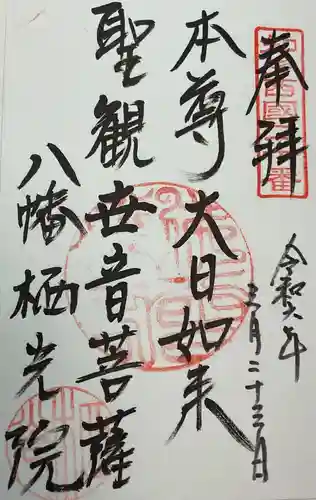 奉拝
令和六年
三月二十三日
本尊大日如来
聖観世音菩薩
八幡栖光院